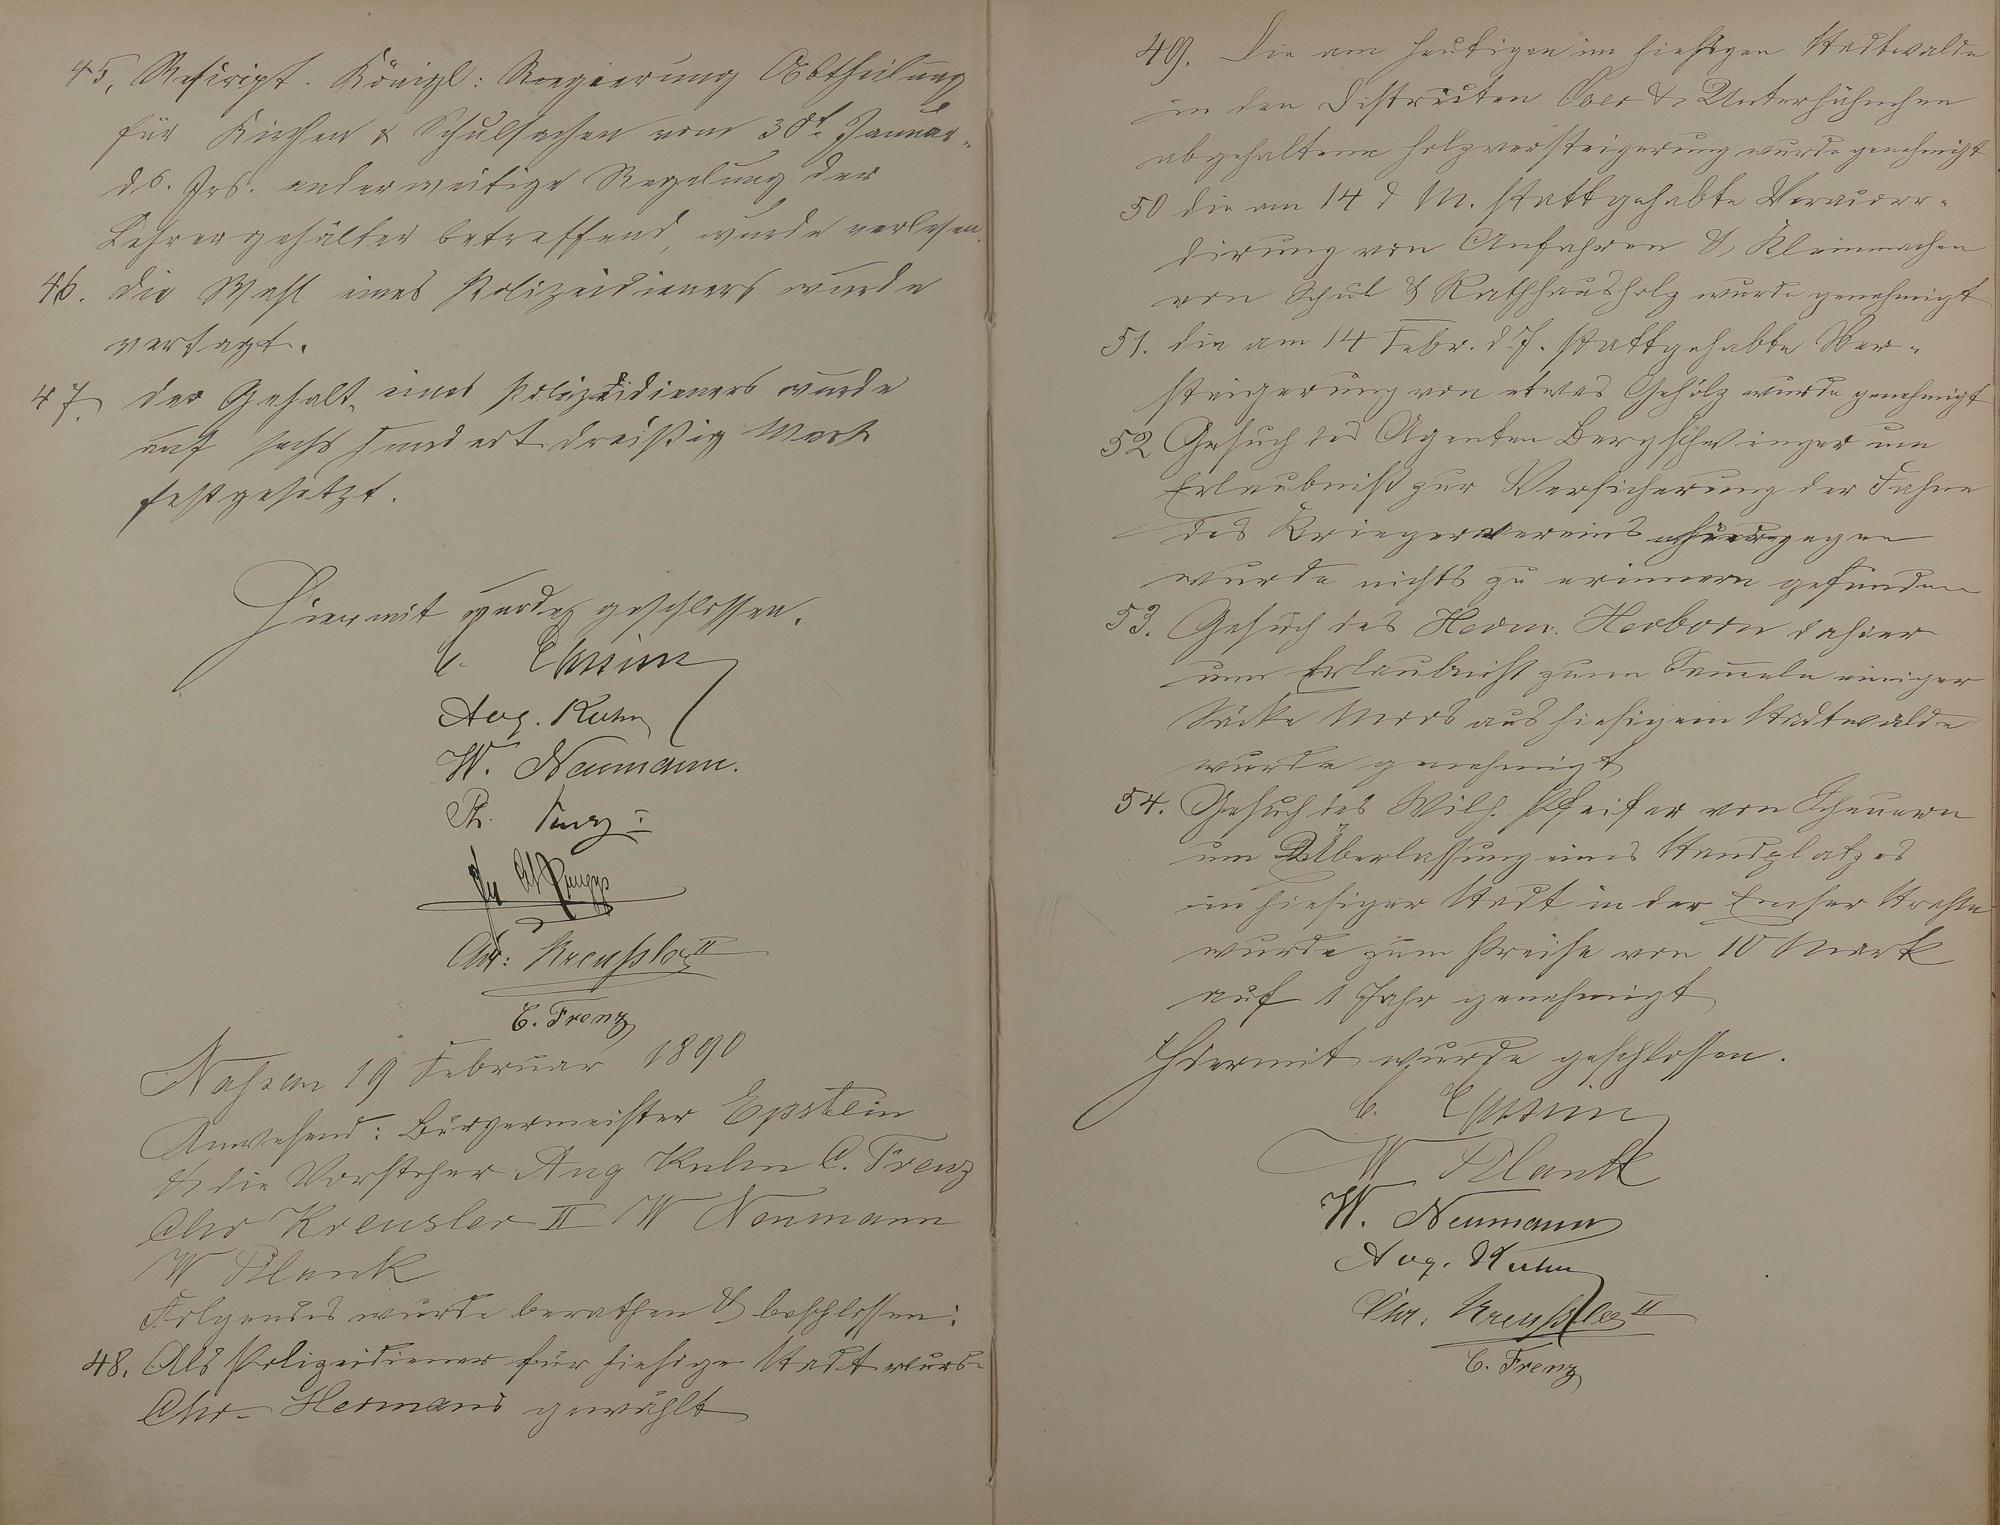 45, Rescript. Königl: Regierung Abtheilung
für Kirchen & Schulsachen vom 30t. Januar
ds. Jrs. anderweitige Regelung der
Lehrergehälter betreffend, wurde verlesen.
46. die Wahl eines Polizeidieners wurde
vertagt.
47. der Gehalt eines Polizeidieners wurde
auf sechs hundert dreißig Mark
festgesetzt.
Hiermit wurde geschlossen.
C. Epstein
Aug. Kuhn
W. Neumann.
Ph.
Chr: Kreußler II
C. Frenz
Nassau 19 Februar 1890
Anwesend: Bürgermeister Epstein
& die Vorsteher Aug Kuhn C. Frenz
Chr Kreusler II W Neumann
W Plank
Folgendes wurde berathen & beschlossen:
48. Als Polizeidiener für hiesige Stadt wurde
Chr. Hermans gewählt
49. Die am heutigen im hiesigen Stadtwalde
in den Distrikten Ober & Unterhähnchen
abgehaltene Holzversteigerung wurde genehmigt
50 die am 14 d M. stattgehabte Veraccor-
dirung von Anfahren & Kleinmachen
von Schul & Rathhausholz wurde genehmigt
51. die am 14 Febr. d J. stattgehabte Ver-
steigerung von etwas Gehölz wurde genehmigt
52 Gesuch des Agenten Bergschwinger um
Erlaubniß zur Versicherung der Fahne
des Kriegervereins hiergegen
wurde nichts zu erinnern gefunden
53. Gesuch des Herm. Herborn dahier
um Erlaubniß zum Sammeln einiger
Säcke Moos aus hiesigem Stadtwalde
wurde genehmigt
54. Gesuch des Wilh. Pfeifer von Scheuern
um Überlassung eines Standplatzes
in hiesiger Stadt in der Emser Straße
wurde zum Preise von 10 Mark
auf 1 Jahr genehmigt
Hiermit wurde geschlossen.
C. Epstein
W Plank
W. Neumann
Aug. Kuhn
Chr. Kreußler II
C. Frenz